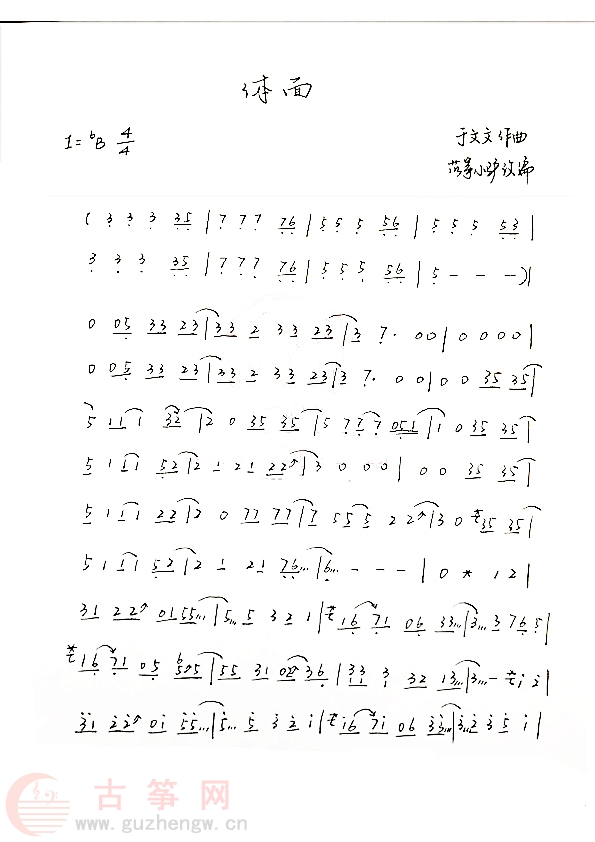 体面
1=ᵇB 4/4
于文文 作曲
古筝小驴改编
( 3 3 3 35 | 7 7 7 76 | 5 5 5 56 | 5 5 5 53 |
3 3 3 35 | 7 7 7 76 | 5 5 5 56 | 5 - - - ) |
0 05 33 23 | 33 2 33 23 | 3 7· 00 | 0 0 0 0 |
0 05 33 23 | 33 2 33 23 | 3 7· 0 0 | 0 0 35 35 |
5 11 1 32 | 2 0 35 35 | 5 77 7 051 | 1 0 35 35 |
5 11 1 52 | 2 1 21 22 | 3 0 0 0 | 0 0 35 35 |
5 11 1 22 | 2 0 77 77 | 7 55 5 22 | 3 0 35 35 |
5 11 1 52 | 2 1 21 76... | 6... - - - | 0 * 12 |
31 22 01 55... | 5... 5 3 2 1 | 16 71 06 33... | 3... 3 765 |
16 71 05 5 5 | 55 31 02 36 | 33 3 32 13... | 3... - 1 2 |
31 22 01 55... | 5... 5 3 2 1 | 16 71 06 33... | 3... 2 3 5 1 |
古筝网
www.guzhengw.cn